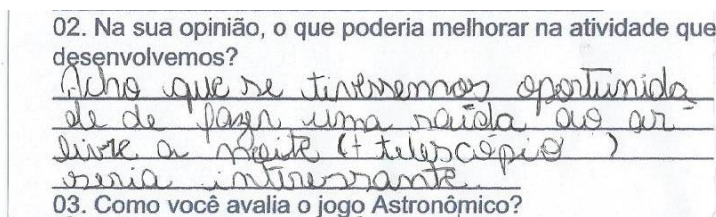 02. Na sua opinião, o que poderia melhorar na atividade que
desenvolvemos?
Acho que se tivessemos oportunida
de de fazer uma saída ao ar
livre a noite (+ telescópio)
seria interessante.
03. Como você avalia o jogo Astronômico?